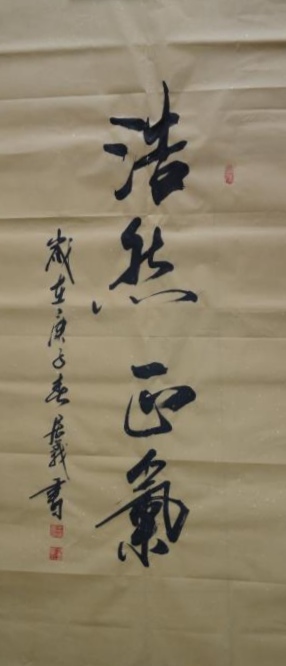 浩然正氣
歲在庚子春居義書